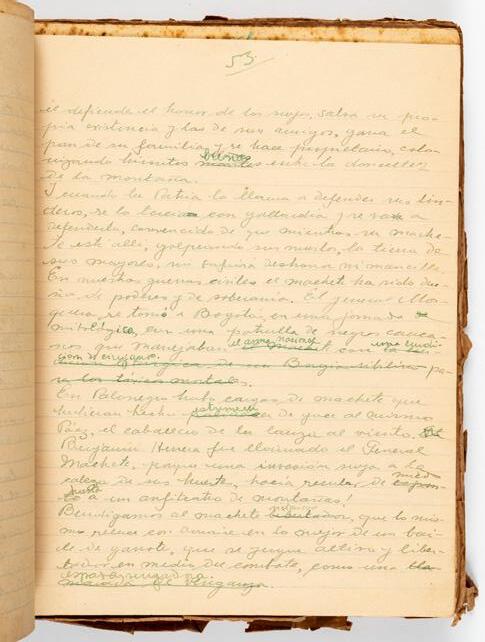 53
él defiende el honor de los suyos, salva su pro-
pia existencia y las de sus amigos, gana el
pan de su familia y se hace propietario, colo-
nizando buenos entre la doncellez
de la montaña.
I cuando la Patria lo llama a defender sus lin-
deros, se lo tercia con gallardía y se va a
defenderla, convencido de que mientras su mache-
te esté allí, golpeando sus muslos, la tierra de
sus mayores, no sufrirá deshonra ni mancilla.
En nuestras guerras civiles el machete ha sido due-
ño de poderes y de soberanía. El general Mos-
quera, se tomó a Bogotá, en una jornada
mitológica, con una patrulla de negros cauca-
nos que manejaban el arma nacional con
pa-
ra los
En Palonegro hubo cargas de machete que
hubieran hecho de goce al mismo
Páez, el caballero de la lanza al viento.
Benjamín Herrera fue llamado el General
Machete, porque una invasión suya a la
cabeza de sus huestes, hacía recular de miedo
hasta a un anfiteatro de montañas!
Bendigamos al machete que lo mis-
mo reluce con donaire en lo mejor de un bai-
le de garrote, que se yergue altivo y liber-
tador en medio del combate, como una
espada vengadora.